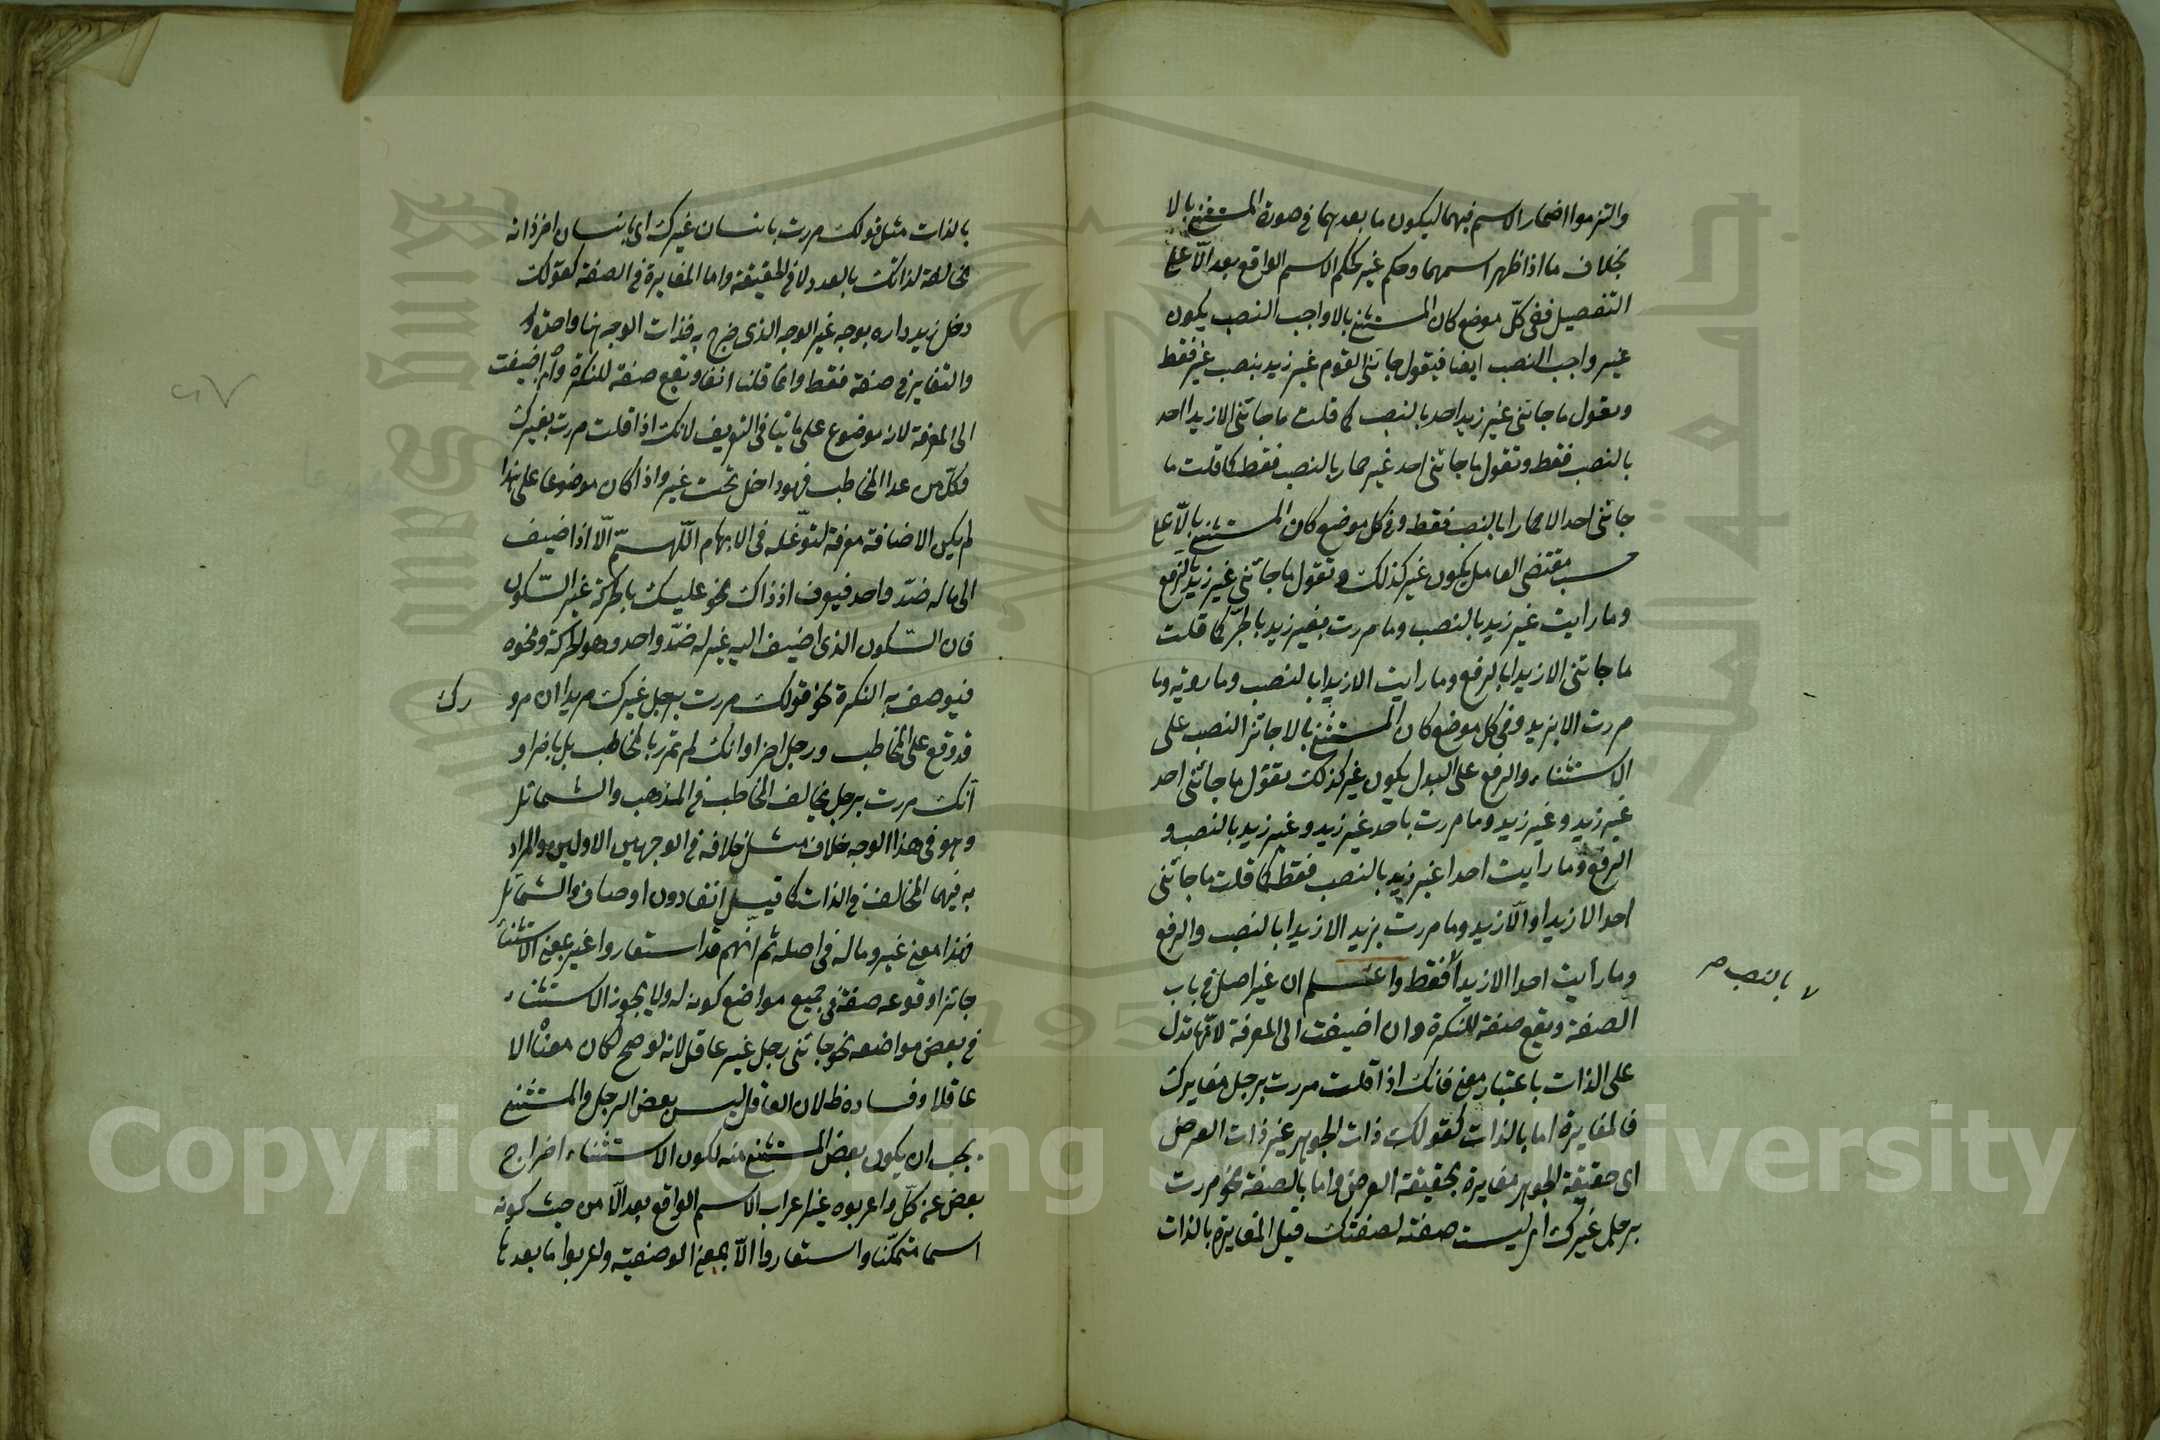 والتزموا اضمار الاسم فيهما ليكون ما بعدهما في صورة المستثنى بالا
بخلاف ما اذا ظهر اسمهما وحكم غير كحكم الاسم الواقع بعد الّا على
التفصيل ففي كلّ موضع كان المستثنى بالا واجب النصب يكون
غير واجب النصب ايضا فيقول جاءنى القوم غير زيد بنصب غير فقط
وتقول ما جاءنى غير زيد احد بالنصب كما قلت ما جاءنى الا زيدا احد
بالنصب فقط وتقول ما جاءنى احد غير حمار بالنصب فقط كما قلت ما
جاءنى احد الا حمارا بالنصب فقط وفي كل موضع كان المستثنى بالّا على
حسب مقتضى العامل يكون غير كذلك وتقول ما جاءنى غير زيد بالرفع
وما رايت غير زيد بالنصب وما مررت بغير زيد بالجرّ كما قلت
ما جاءنى الا زيد بالرفع وما رايت الا زيدا بالنصب وما
مررت الا بزيد وفي كل موضع كان المستثنى بالا جائز النصب على
الاستثناء والرفع على البدل يكون غير كذلك تقول ما جاءنى احد
غير زيد وغير زيد وما مررت باحد غير زيد وغير زيد بالنصب و
الرفع وما رايت احدا غير زيد بالنصب فقط كما قلت ما جاءنى
احد الا زيدا والّا زيد وما مررت بزيد الا زيدا بالنصب والرفع
وما رايت احدا الا زيداً فقط واعلم ان غير اصل في باب
الصفة ويقع صفة للنكرة وان اضيفت الى المعرفة لانّها تدل
على الذات باعتبار معنى فانك اذا قلت مررت برجل مغايرك
فالمغايرة اما بالذات كقولك ذات الجوهر غير ذات العرض
اى حقيقة الجوهر مغايرة بحقيقة العرض واما بالصفة نحو مررت
برجل غيرك اى ليست صفته لصفتك قيل المغايرة بالذات
بالنصب صح
بالذات مثل قولك مررت بانسان غيرك اى بانسان اخر ذاته
مخالفة لذاتك بالعدد لا في الحقيقة واما المغايرة في الصفة كقولك
دخل زيد داره بوجه غير الوجه الذى خرج به فذات الوجه هنا واحدة
والتغاير في صفة فقط وانما قلنا انفا ويقع صفة للنكرة وان اضيفت
الى المعرفة لانه موضوع على ما ينافى التعريف لانك اذا قلت مررت بغيرك
فكل من عدا المخاطب فهو داخل تحت غير واذا كان موضوعا على هذا
لم يكن الاضافة معرفة لتوغّله فى الابهام اللّهمّ الّا اذا اضيف
الى ما له ضدّ واحد فيعرف اذ ذاك نحو عليك بالحركة غير السّكون
فان السّكون الذى اضيف اليه غير له ضدّ واحد وهو الحركة ونحوه
فيوصف به النكرة نحو قولك مررت برجل غيرك مريدا ان مرورك
قد وقع على المخاطب ورجل اخر او انك لم تمرر بالمخاطب بل باخر او
انّك مررت برجل يخالف المخاطب في المذهب والشمائل
وهو فى هذا الوجه خلاف مثل خلافه في الوجهين الاولين والمراد
به فيهما المخالف في الذات كما قيل انفا دون اوصاف والشمائل
فهذا معنى غير وما له فى اصله ثم انّهم قد استعاروا غير بمعنى الاستثناء
جائزا وقوعه صفة فى جميع مواضع كونه له ولا يجوز الاستثناء
في بعض مواضعه نحو جاءنى رجل غير عاقل لانه لو صح لكان معناه الا
عاقلا وفساده ظ لان العاقل ليس بعض الرجل والمستثنى
يجب ان يكون بعض المستثنى منه لكون الاستثناء اخراج
بعض عن كلّ واعربوه غير اعراب الاسم الواقع بعد الّا من حيث كونه
اسما متمكّنا واستعاروا الّا بمعنى الوصفية واعربوا ما بعدها
Copyright © King Saud University